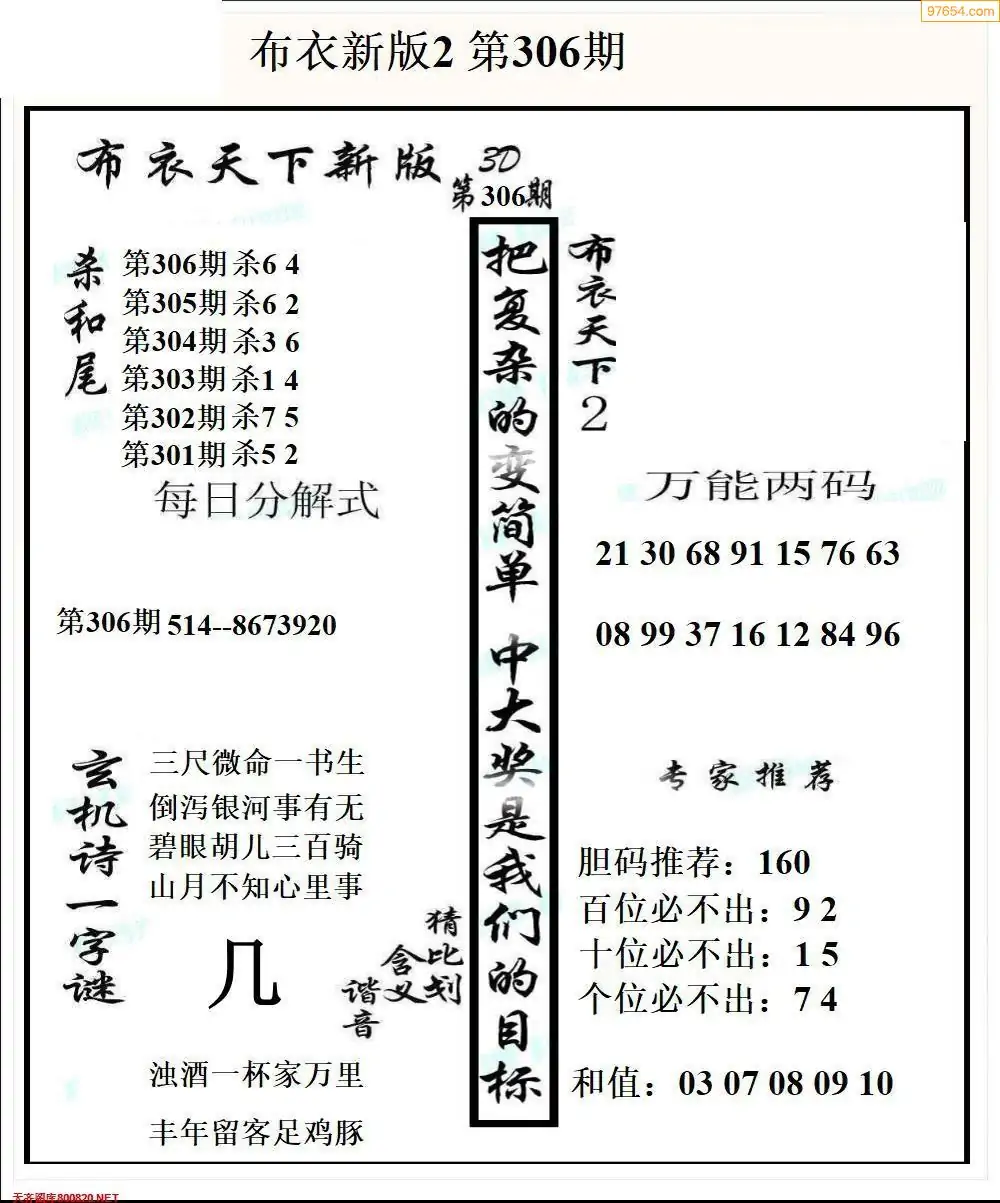 97654.com
布衣新版2 第306期
布衣天下新版
3D
第306期
杀和尾
第306期杀6 4
第305期杀6 2
第304期杀3 6
第303期杀1 4
第302期杀7 5
第301期杀5 2
每日分解式
第306期 514--8673920
玄机诗一字谜
三尺微命一书生
倒泻银河事有无
碧眼胡儿三百骑
山月不知心里事
几
猜比划
含义
谐音
浊酒一杯家万里
丰年留客足鸡豚
把复杂的变简单 中大奖是我们的目标
布衣天下2
万能两码
21 30 68 91 15 76 63
08 99 37 16 12 84 96
专家推荐
胆码推荐：160
百位必不出：9 2
十位必不出：1 5
个位必不出：7 4
和值：03 07 08 09 10
天齐图库800820.NET